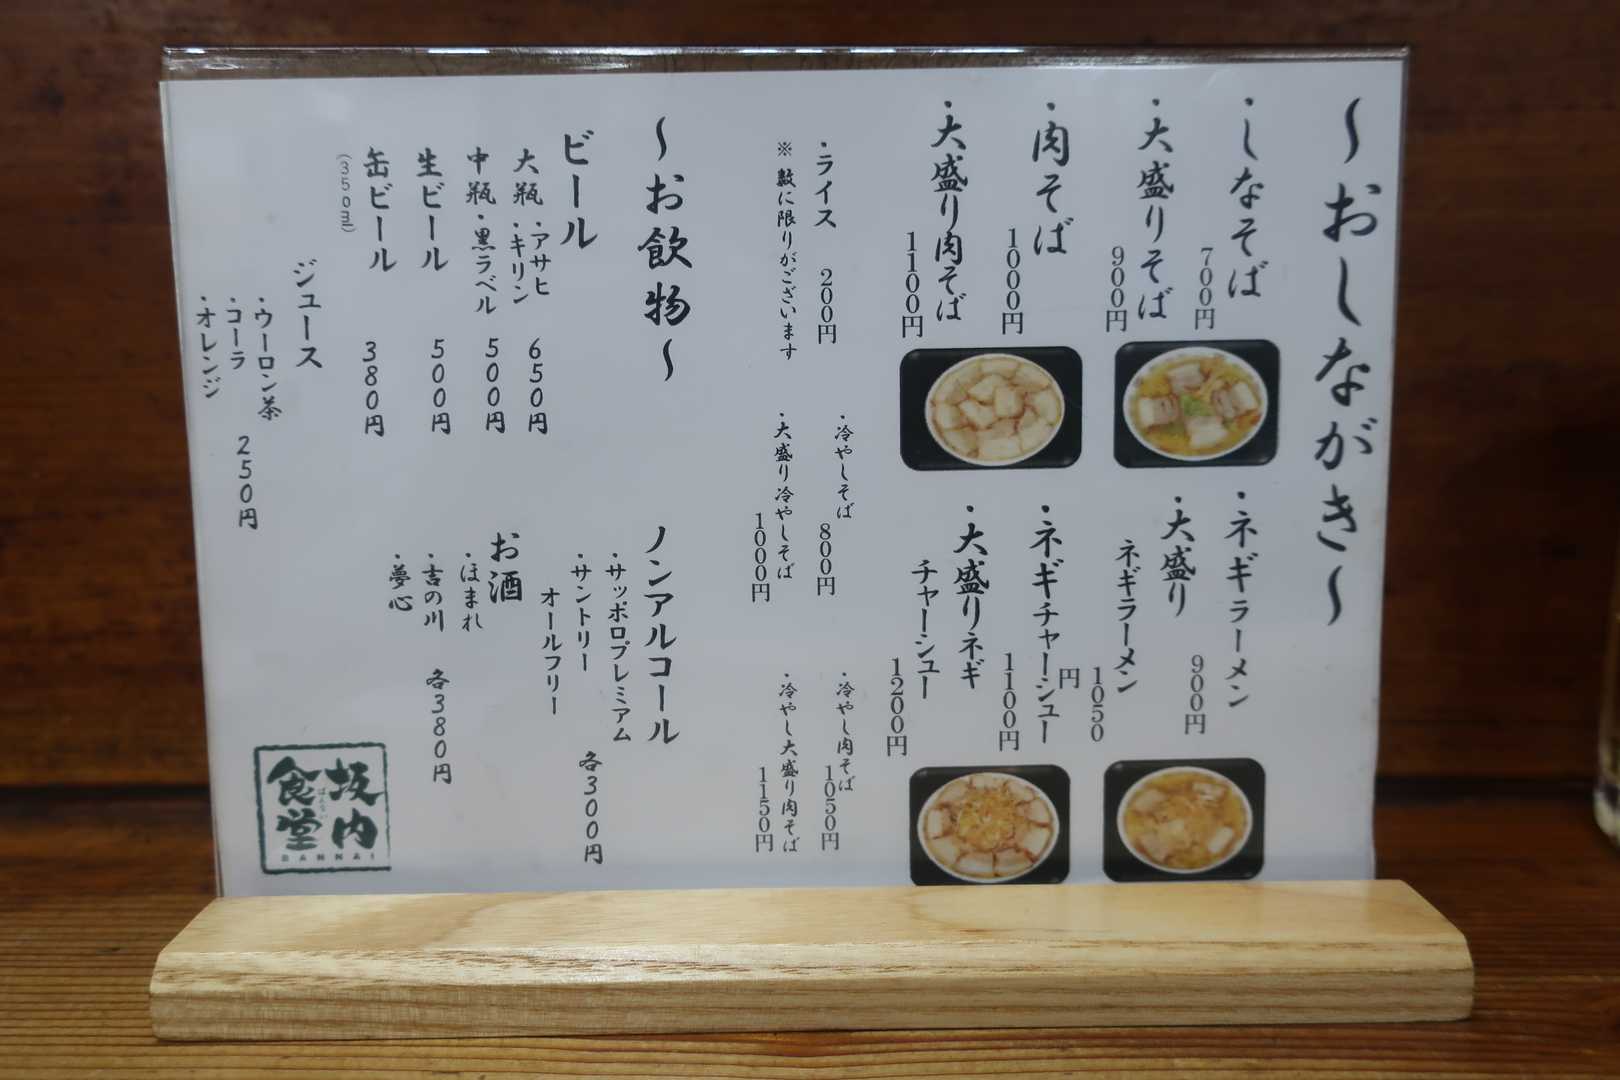 ～おしながき～
・しなそば
700円
・大盛りそば
900円
・肉そば
1000円
・大盛り肉そば
1100円
・ネギラーメン
900円
・大盛り
ネギラーメン
1050
円
・ネギチャーシュー
1100円
・大盛りネギ
チャーシュー
1200円
・ライス 200円
※ 数に限りがございます
・冷やしそば
800円
・大盛り冷やしそば
1000円
・冷やし肉そば
1050円
・冷やし大盛り肉そば
1150円
～お飲物～
ビール
大瓶 ・アサヒ
・キリン 650円
中瓶 ・黒ラベル 500円
生ビール 500円
缶ビール 380円
(350㎖)
ジュース
・ウーロン茶
・コーラ 250円
・オレンジ
ノンアルコール
・サッポロプレミアム
・サントリー
オールフリー
各300円
お酒
・ほまれ
・吉の川 各380円
・夢心
坂内
食堂
ばんない
BANNAI